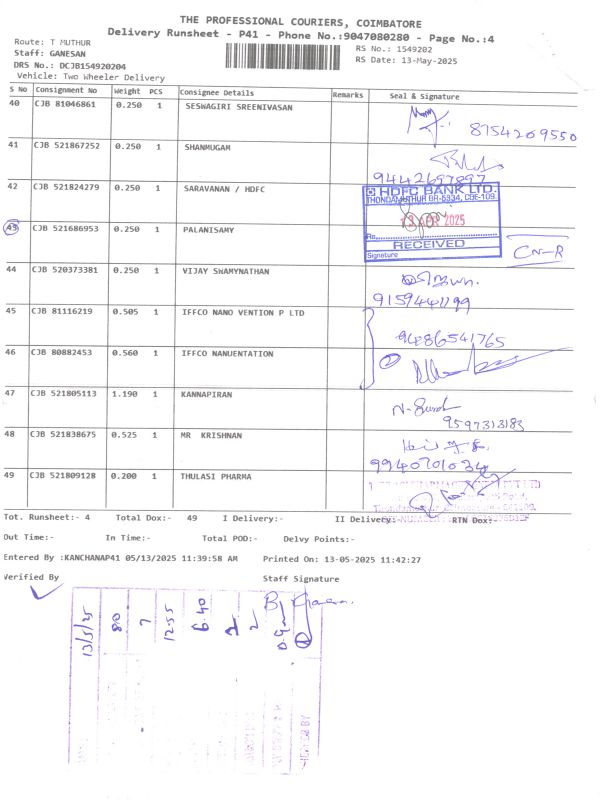 THE PROFESSIONAL COURIERS, COIMBATORE
Delivery Runsheet - P41 - Phone No.:9047080280 - Page No.:4
Route: T MUTHUR
Staff: GANESAN
RS No.: 1549202
DRS No.: DCJB154920204
RS Date: 13-May-2025
Vehicle: Two Wheeler Delivery
S No Consignment No Weight PCS Consignee Details Remarks Seal & Signature
40 CJB 81046861 0.250 1 SESWAGIRI SREENIVASAN
8754209550
41 CJB 521867252 0.250 1 SHANMUGAM
9442697897
42 CJB 521824279 0.250 1 SARAVANAN / HDFC
HDFC BANK LTD.
THONDAMUTHUR BR-5934, CBE-109.
2025
RECEIVED
Signature
43 CJB 521686953 0.250 1 PALANISAMY
CN-R
44 CJB 520373381 0.250 1 VIJAY SWAMYNATHAN
9159441199
45 CJB 81116219 0.505 1 IFFCO NANO VENTION P LTD
9486541765
46 CJB 80882453 0.560 1 IFFCO NANUENTATION
47 CJB 521805113 1.190 1 KANNAPIRAN
9597313183
48 CJB 521838675 0.525 1 MR KRISHNAN
9940701034
49 CJB 521809128 0.200 1 THULASI PHARMA
Tot. Runsheet:- 4 Total Dox:- 49 I Delivery:- II Delivery:- RTN Dox:-
Out Time:- In Time:- Total POD:- Delvy Points:-
Entered By :KANCHANAP41 05/13/2025 11:39:58 AM Printed On: 13-05-2025 11:42:27
Verified By Staff Signature
13/5/25
80
7
12.55
6.40
2
2